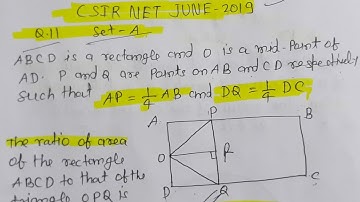 CSIR NET JUNE-2019
Q.11 Set-A
ABCD is a rectangle and O is a mid-Point of
AD. P and Q are Points on AB and CD respectively
Such that AP = 1/4 AB and DQ = 1/4 DC,
The ratio of area
of the rectangle
ABCD to that of the
triangle OPQ is
A P B
O R
D Q C